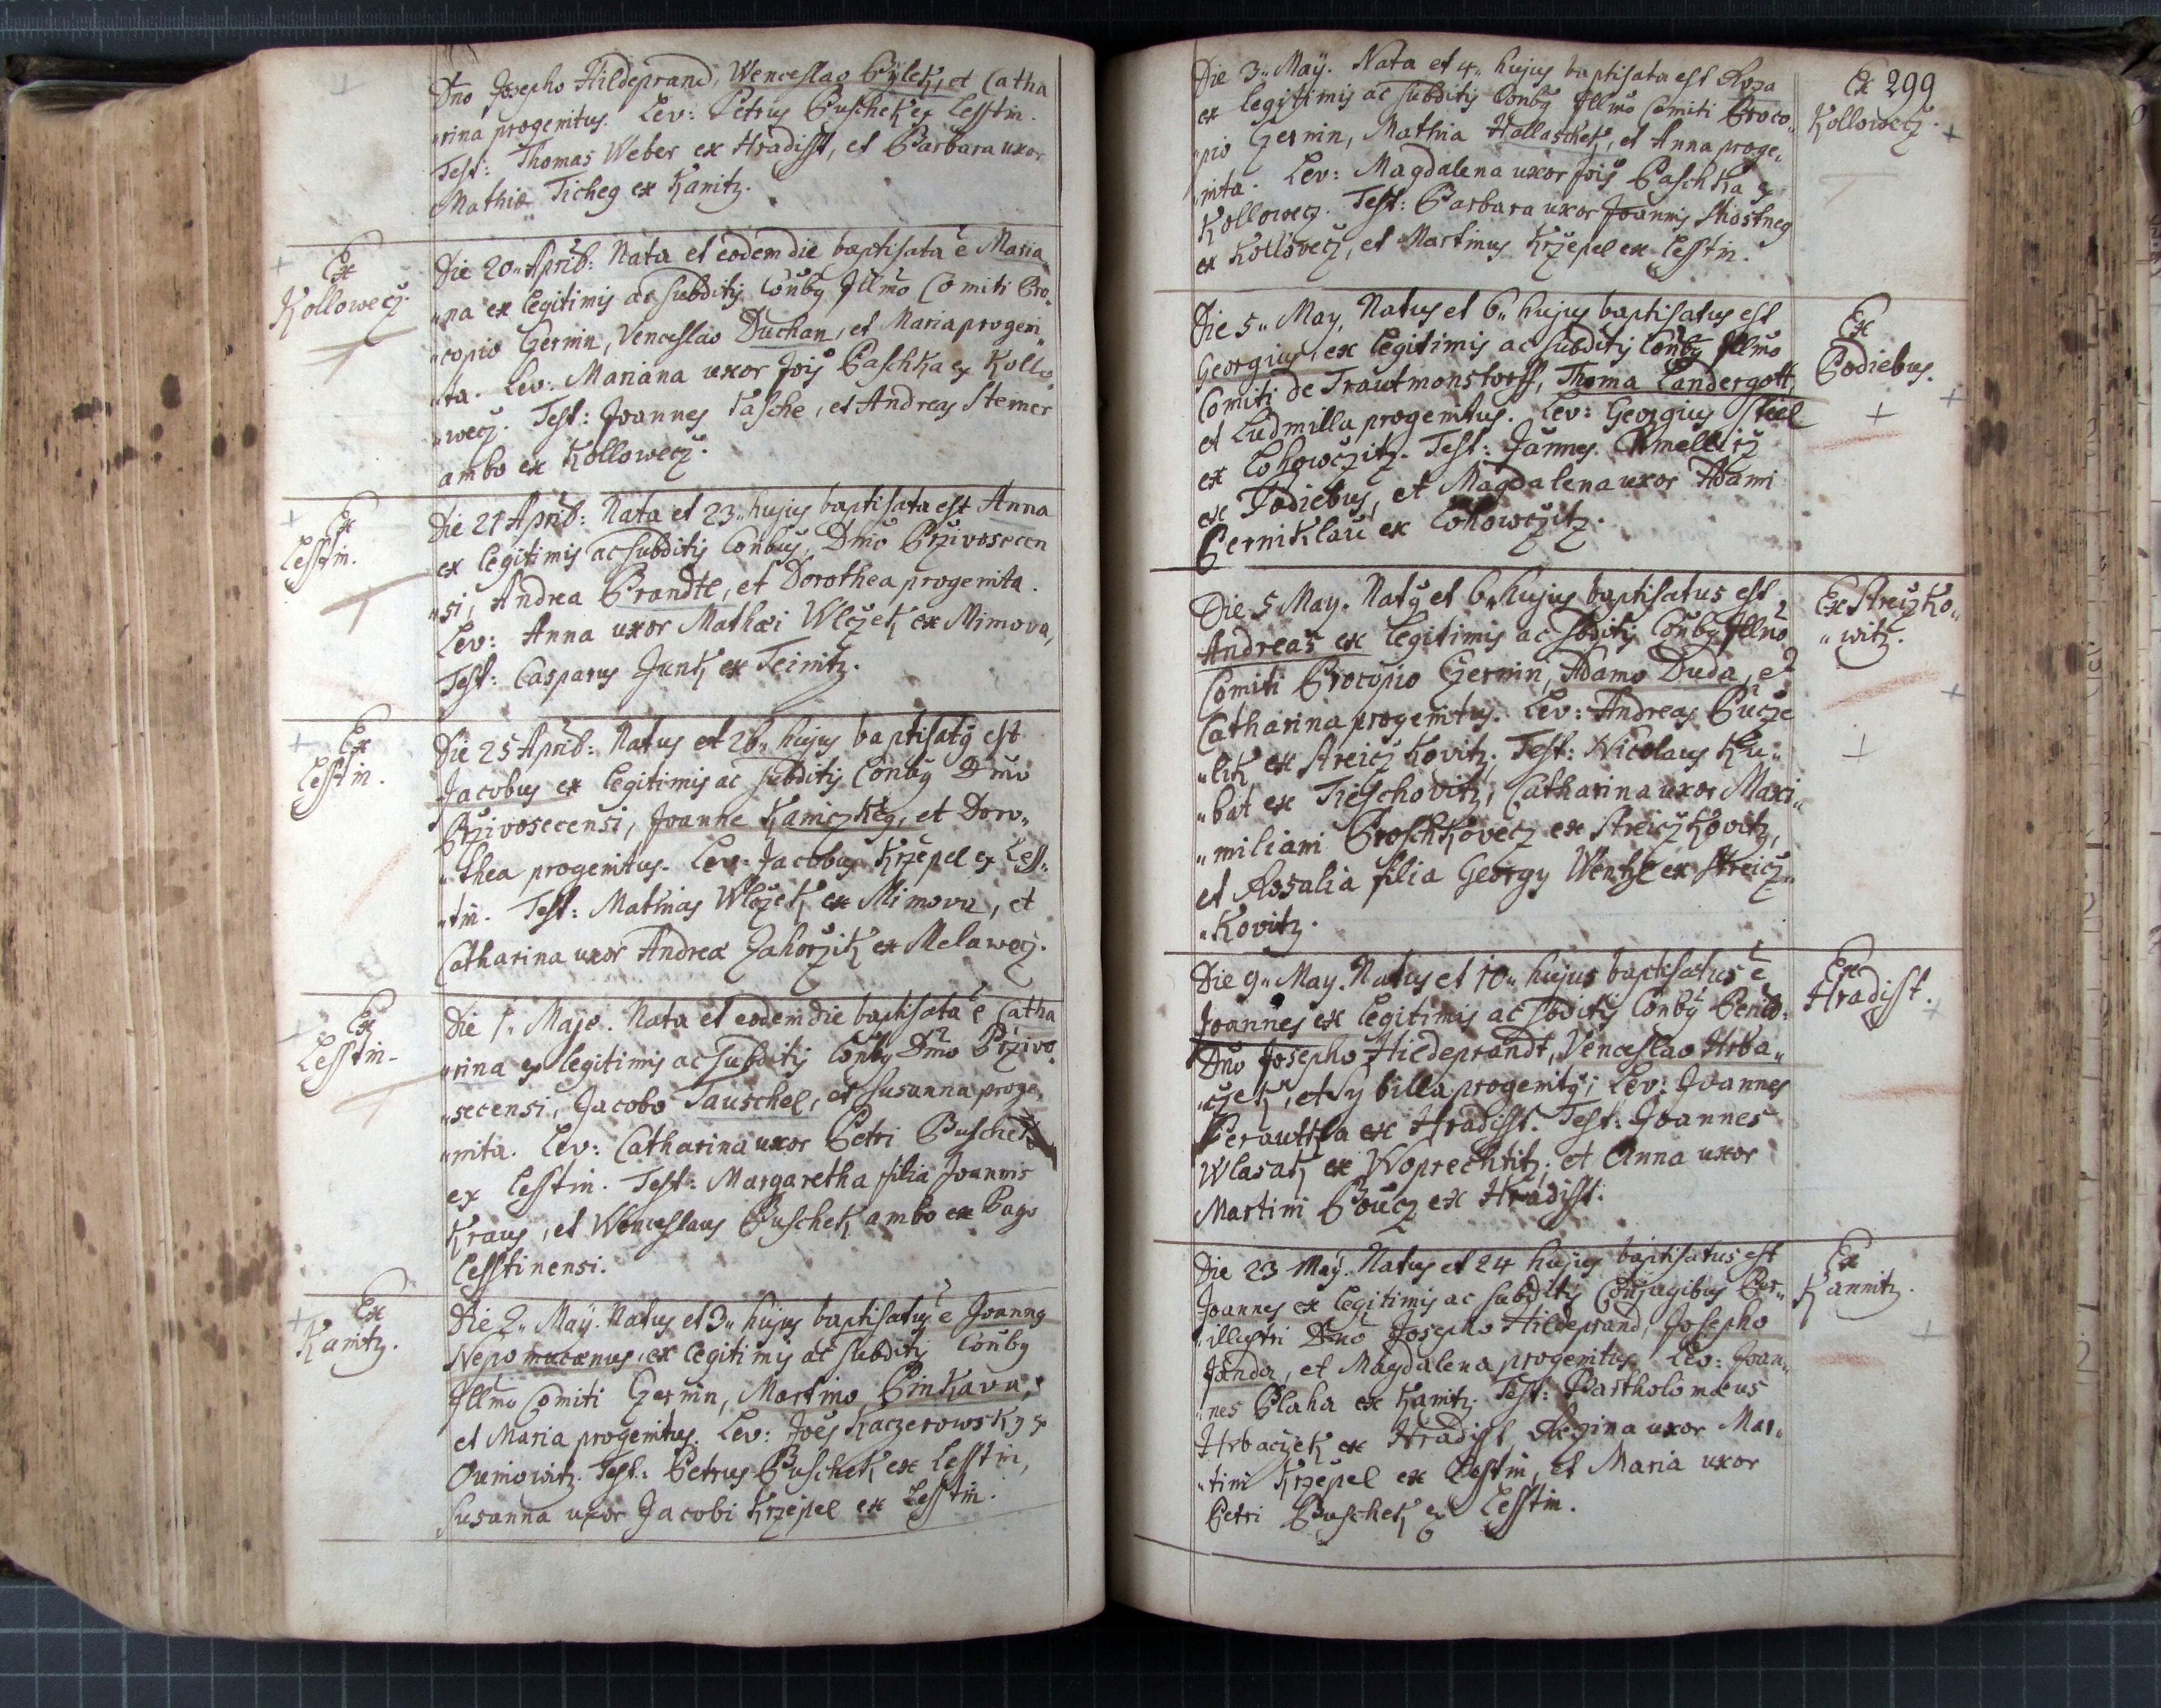 Dno Josepho Hildeprand, Wenceslao Bÿlek, et Catha
"rina progenitus. Lev: Petrus Puschek ex Lesstin.
Test: Thomas Weber ex Hradisst, et Barbara uxor
Mathiæ Ticheg ex Kanitz.
Ex
Kollowecz.
Die 20" Aprib: Nata et eodem die baptisata e Maria
"na ex legitimis ac subditis Conby Illmo Comiti Pro"
"copio Czernin, Venceslao Duchan, et Maria progeni"
"ta. Lev: Mariana uxor Jois Paschka ex Kollo"
"wecz. Test: Joannes Pasche, et Andreas Sterner
ambo ex Kollowecz.
Ex
Lesstin.
Die 21 Aprib: Nata et 23" hujus baptisata est Anna
ex legitimis ac subditis Conbus Dmo Przivosecen
"si, Andrea Brandtl, et Dorothea progenita.
Lev: Anna uxor Mathæi Wlczek ex Mimova,
Test: Casparus Junk ex Teinitz.
Ex
Lesstin.
Die 25 Aprib: Natus et 26" hujus baptisaty est
Jacobus ex legitimis ac subditis Conby Dmo
Przivosecensi, Joanne Kaniczkeg, et Doro"
"thea progenitus. Lev: Jacobus Krzepel ex Less"
"tin. Test: Mathias Wlczek ex Mimova, et
Catharina uxor Andreæ Zahorzik ex Melawecz.
Ex
Lesstin.
Die 1" Maje. Nata et eodem die baptisata e Catha
"rina ex legitimis ac subditis Conby Dmo Przivo"
"secensi, Jacobo Tauschel, et Susanna proge"
"nita. Lev: Catharina uxor Petri Puschek
ex Lesstin. Test: Margaretha filia Joannis
Kraus, et Wenceslaus Puschek ambo ex Pago
Lesstinensi.
Ex
Kanitz.
Die 2" Maÿ. Natus et 3" hujus baptisatus e Joannes
Nepomucænus, ex legitimis ac subditis Conby
Illmo Comiti Czernin, Martino Pinkava,
et Maria progenitus. Lev: Joes Kaczerowsky ex
Ounowitz. Test: Petrus Puschek ex Lesstin,
Susanna uxor Jacobi Krzepel ex Lesstin.
299
Die 3" Maÿ. Nata et 4" hujus baptisata est Roza
ex legitimis ac subditis Conby Illmo Comiti Proco"
"pio Czernin, Mathia Hallaschek, et Anna proge"
"nita. Lev: Magdalena uxor Jois Paschka ex
Kollowecz. Test: Barbara uxor Joannis Skostneg
ex Kollovecz, et Martinus Krzepel ex Lesstin.
Ex
Kollowecz.
Die 5" May. Natus et 6" hujus baptisatus est
Georgius, ex legitimis ac subditis Conby Illmo
Comiti de Trautmonstorff, Thoma Landergott,
et Ludmilla progenitus. Lev: Georgius Stiel
ex Lohowczitz. Test: Joannes Chmellirz
ex Podiebus, et Magdalena uxor Adami
Perniklau ex Lohowczitz.
Ex
Podiebus.
Die 5 May. Naty et 6" hujus baptisatus est
Andreas ex legitimis ac sbditis Conby Illmo
Comiti Procopio Czernin, Adamo Duda, et
Catharina progenitus. Lev: Andreas Pucze
"lik ex Streiczkovitz. Test: Nicolaus Ku"
"bat ex Tieschovitz, Catharina uxor Maxi"
"miliani Broschkovecz ex Streiczkovitz,
et Rosalia filia Georgy Wentzl ex Streicz"
"kovitz.
Ex Streizko"
"witz.
Die 9" May. Natus et 10" hujus baptisatus e
Joannes ex legitimis ac sbditis Conby Perill:
Dno Josepho Hildeprandt, Venceslao Hrba"
"czek, et Sybilla progenity; Lev: Joannes
Perautka ex Hradisst. Test: Joannes
Wlasak ex Woprechtitz, et Anna uxor
Martini Boucz ex Hradisst.
Ex
Hradisst.
Die 23 Maÿ. Natus et 24 hujus baptisatus est
Joannes ex legitimis ac subditis Conjugibus Per"
"illustri Dno Josepho Hildeprand, Josepho
Janda, et Magdalena progenitus. Lev: Joan"
"nes Blaha ex Kanitz. Test: Bartholomæus
Hrbaczek ex Hradisst, Regina uxor Mar"
"tini Krzepel ex Lesstin, et Maria uxor
Petri Puschek ex Lesstin.
Ex
Kannitz.